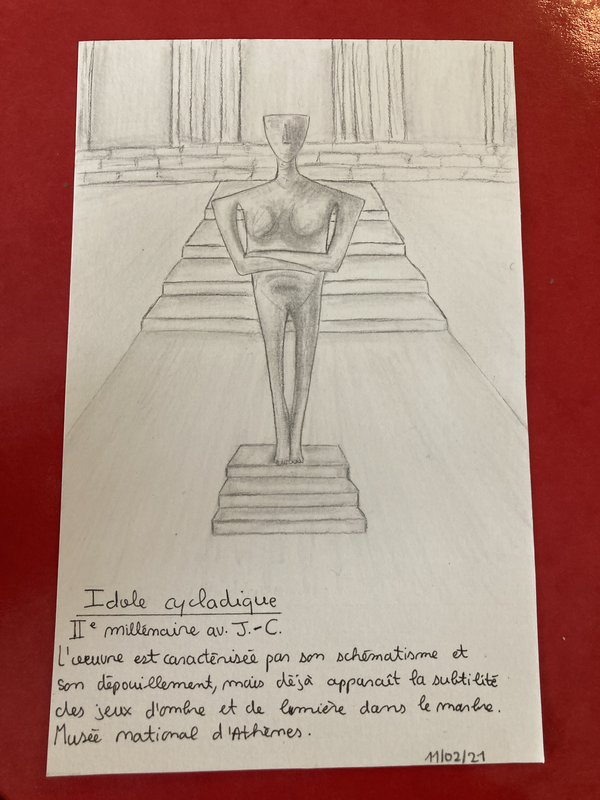 Idole cycladique
IIe millénaire av. J.-C.
L'oeuvre est caractérisée par son schématisme et
son dépouillement, mais déjà apparaît la subtilité
des jeux d'ombre et de lumière dans le marbre.
Musée national d'Athènes.
11/02/21